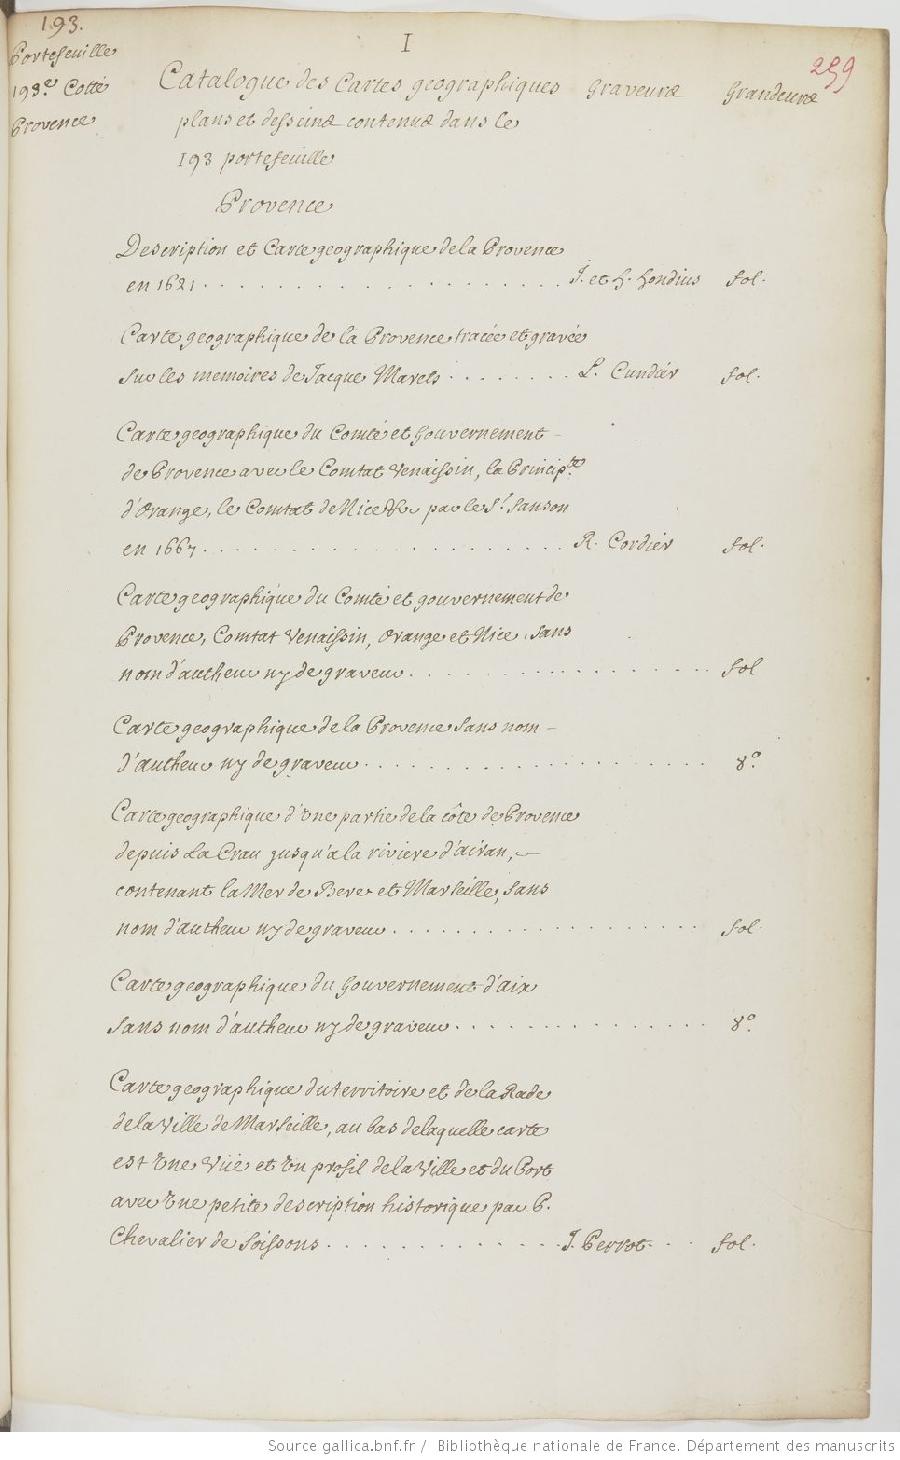 193.
Portefeuille
193.e Cotté
Provence
I
259
Catalogue des Cartes geographiques Graveurs Grandeurs
plans et desseins contenus dans le
193 portefeuille
Provence
Description et Carte geographique de la Provence
en 1621 . . . . . . . . . . . . . . . . . . . . J. et H. Hondius fol.
Carte geographique de la Provence tracée et gravée
sur les memoires de Jacque Marets . . . . . . . . L. Cundier fol.
Carte geographique du Comté et Gouvernement
de Provence avec le Comtat Venaissin, la Princip.té
d'Orange, le Comtat de Nice &c par le S.r Sanson
en 1667 . . . . . . . . . . . . . . . . . . . . R. Cordier fol.
Carte geographique du Comté et gouvernement de
Provence, Comtat Venaissin, Orange et Nice sans
nom d'autheur ny de graveur . . . . . . . . . . . . . . . . fol
Carte geographique de la Provence sans nom
d'autheur ny de graveur . . . . . . . . . . . . . . . . . . . 8.o
Carte geographique d'Une partie de la côte de Provence
depuis La Crau jusqu'a la riviere d'
contenant la Mer de Berre et Marseille, sans
nom d'autheur ny de graveur . . . . . . . . . . . . . . . . . fol.
Carte geographique du Gouvernement d'aix
sans nom d'autheur ny de graveur . . . . . . . . . . . . . . 8.o
Carte geographique du territoire et de la Rade
de la Ville de Marseille, au bas de laquelle carte
est Une Vüe et Un profil de la Ville et du Port
avec Une petite description historique par P.
Chevalier de Soissons . . . . . . . . . . . . . J. Perrot . . . fol.
Source gallica.bnf.fr / Bibliothèque nationale de France. Département des manuscrits